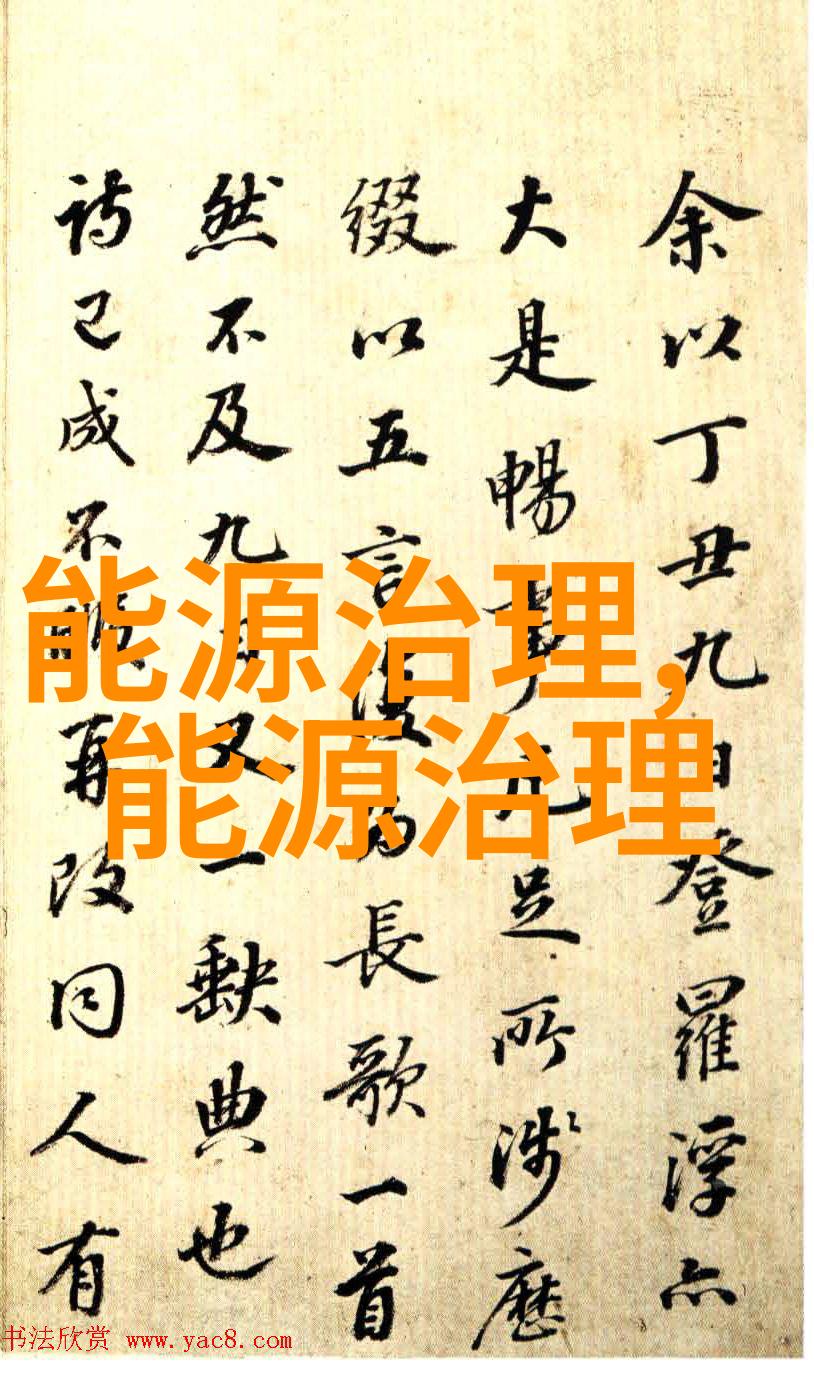 余以丁丑九日登羅浮亦
大是暢事凡足所涉歷
綴以五言復為長歌一首
然不及九日又一缺典也
詩已成不再改同人有
能源治理,
能源治理
书法欣赏 www.yac8.com